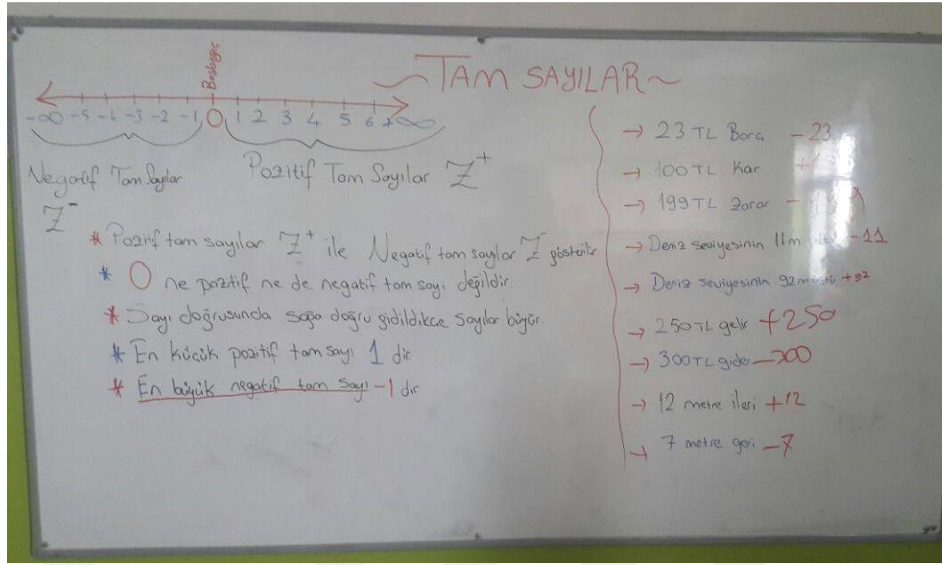 ~TAM SAYILAR~
Başlangıç
-∞ -5 -4 -3 -2 -1 0 1 2 3 4 5 6 +∞
Negatif Tam Sayılar
Pozitif Tam Sayılar Z⁺
Z⁻
* Pozitif tam sayılar Z⁺ ile Negatif tam sayılar Z⁻ gösterilir
* 0 ne pozitif ne de negatif tam sayı değildir.
* Sayı doğrusunda sağa doğru gidildikçe sayılar büyür.
* En küçük pozitif tam sayı 1 dir
* En büyük negatif tam sayı -1 dir
→ 23 TL Borç -23
→ 100 TL Kar
→ 199 TL Zarar -
→ Deniz seviyesinin 11m -11
→ Deniz seviyesinin 92m üstü +92
→ 250 TL gelir +250
→ 300 TL gider -300
→ 12 metre ileri +12
→ 7 metre geri -7